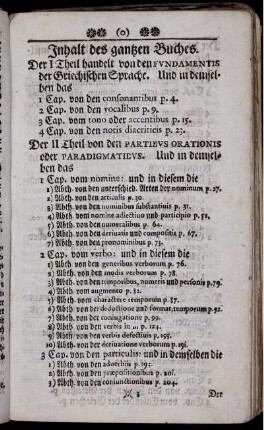 (0)
Inhalt des gantzen Buches.
Der I Theil handelt von den FVNDAMENTIS
der Griechischen Sprache. Und in demsel-
ben das
1 Cap. von den consonantibus p. 4.
2 Cap. von den vocalibus p. 9.
3 Cap. vom tono oder accentibus p. 15.
4 Cap. von den notis diacriticis p. 23.
Der II Theil von den PARTIBVS ORATIONIS
oder PARADIGMATICVS. Und in demsel-
ben das
1 Cap. vom nomine: und in diesem die
1) Abth. von den unterschied. Arten der nominum p. 27.
2) Abth. von den articulis p. 30.
3) Abth. von den nominibus substantivis p. 31.
4) Abth. vom nomine adiectivo und participio p. 51.
5) Abth. von den numeralibus p. 64.
6) Abth. von den derivatis und compositis p. 67.
7) Abth. von den pronominibus p. 73.
2 Cap. vom verbo: und in diesem die
1) Abth. von den generibus verborum p. 76.
2) Abth. von den modis verborum p. 78.
3) Abth. von den temporibus, numeris und personis p. 79.
4) Abth. vom augmento p. 81.
5) Abth. vom charactere temporum p. 87.
6) Abth. von der deductione und format. temporum p. 91.
7) Abth. von der coniugatione p. 99.
8) Abth. von den verbis in p. 124.
9) Abth. von den verbis defectivis p.
10) Abth. von der derivatione verborum p.
3 Cap. von den particulis: und in demselben die
1) Abth. von den adverbiis p.
2) Abth. von den praepositionibus p.
3) Abth. von den coniunctionibus p. 204.
Der